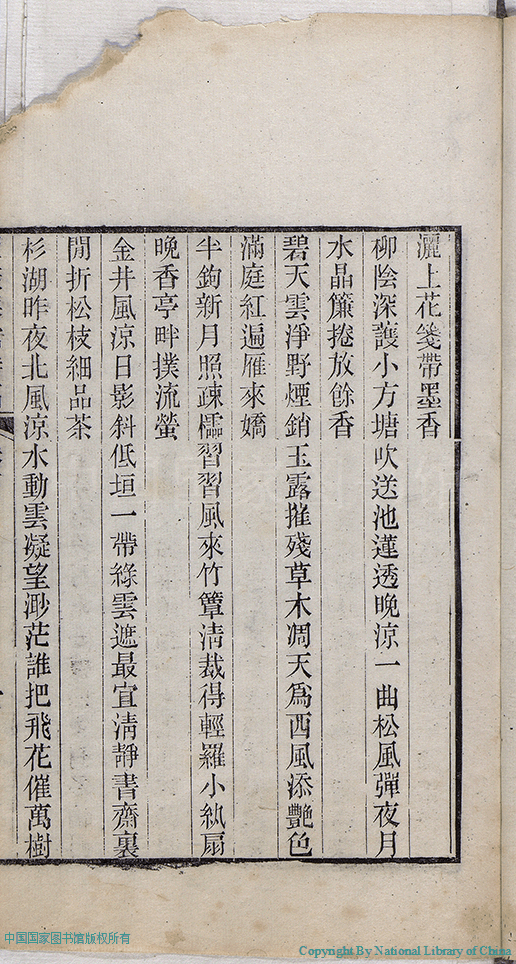 灑上花箋帶墨香
柳陰深護小方塘吹送池蓮透晚涼一曲松風彈夜月
水晶簾捲放餘香
碧天雲淨野煙銷玉露摧殘草木凋天為西風添艷色
滿庭紅遍雁來嬌
半鉤新月照疎櫺習習風來竹簟淸裁得輕羅小紈扇
晚香亭畔撲流螢
金井風涼日影斜低垣一帶綠雲遮最宜淸靜書齋裏
閒折松枝細品茶
杉湖昨夜北風涼水動雲凝望渺茫誰把飛花催萬樹
中国国家图书馆版权所有
Copyright By National Library of China